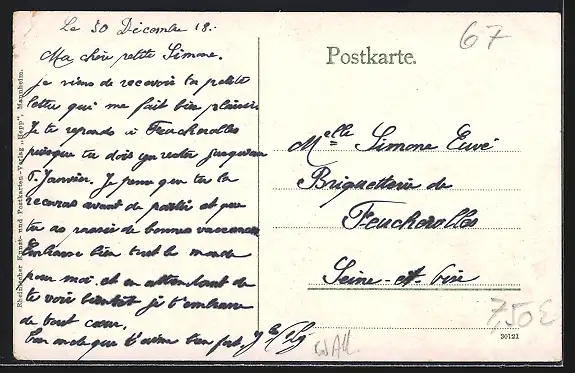 Le 30 Décembre 18.
Ma chère petite Simone.
Je viens de recevoir ta petite
lettre qui me fait bien plaisir
Je te reponds à Feucherolles
puisque tu dois y rester jusqu'au
5 Janvier. Je pense que tu la
recevras avant de partir et que
tu as passé de bonnes vacances
Embrasse bien tout le monde
pour moi. et en attendant de
te voir bientôt je t'embrasse
de tout cœur.
Ton oncle que t'aime bien fort.
Postkarte.
67
Melle Simone Euvé
Briquetterie de
Feucherolles
Seine-et-Oise
7,50 €
30121
Rheinischer Kunst- und Postkarten-Verlag „Hepp", Mannheim.